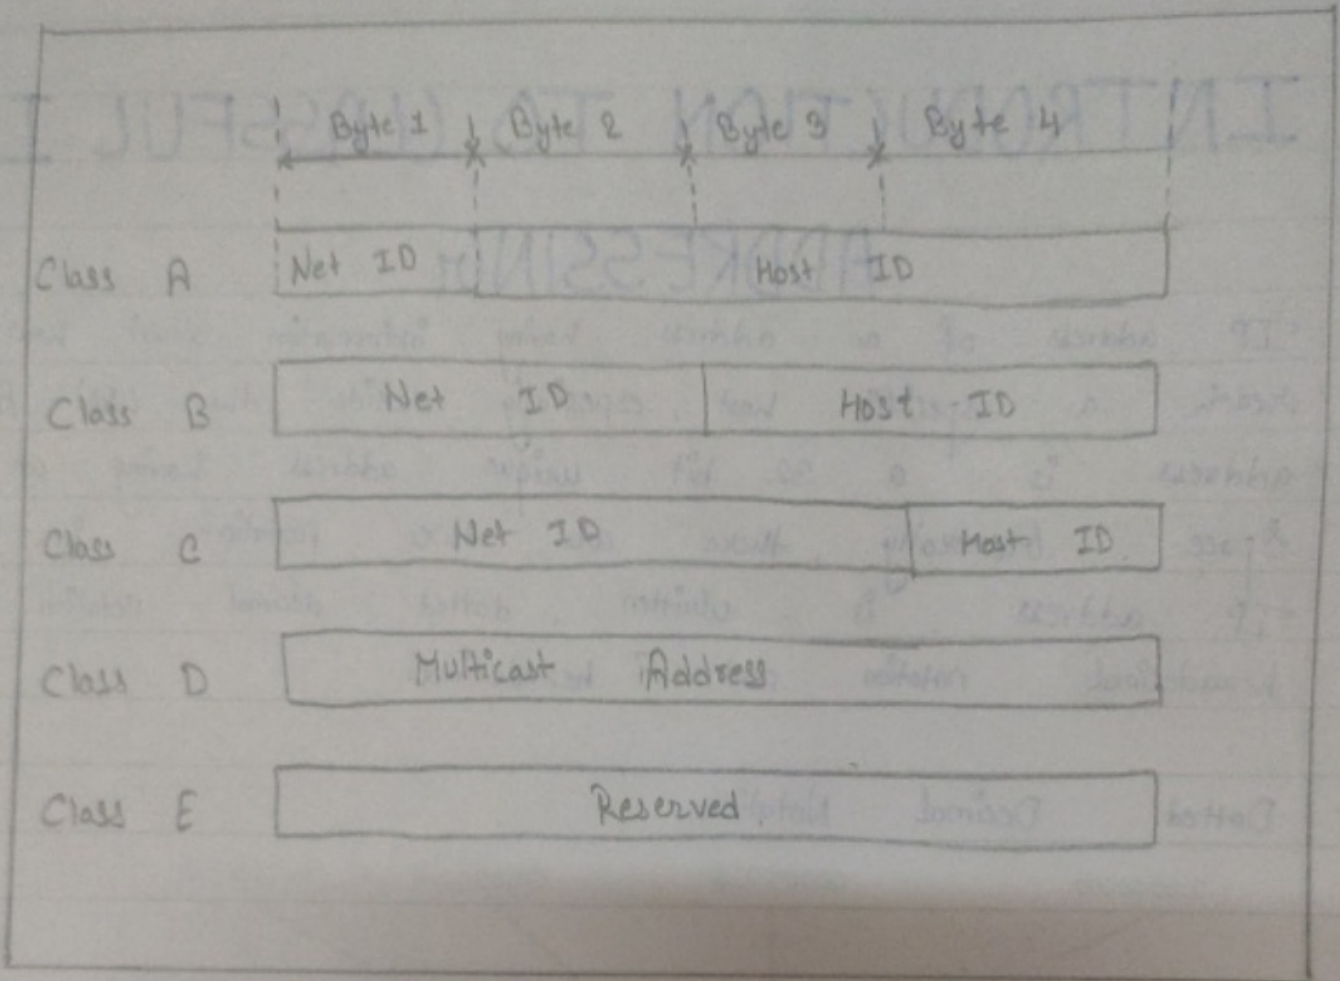 Byte 1 Byte 2 Byte 3 Byte 4
Class A Net ID Host ID
Class B Net ID Host ID
Class C Net ID Host ID
Class D Multicast Address
Class E Reserved.